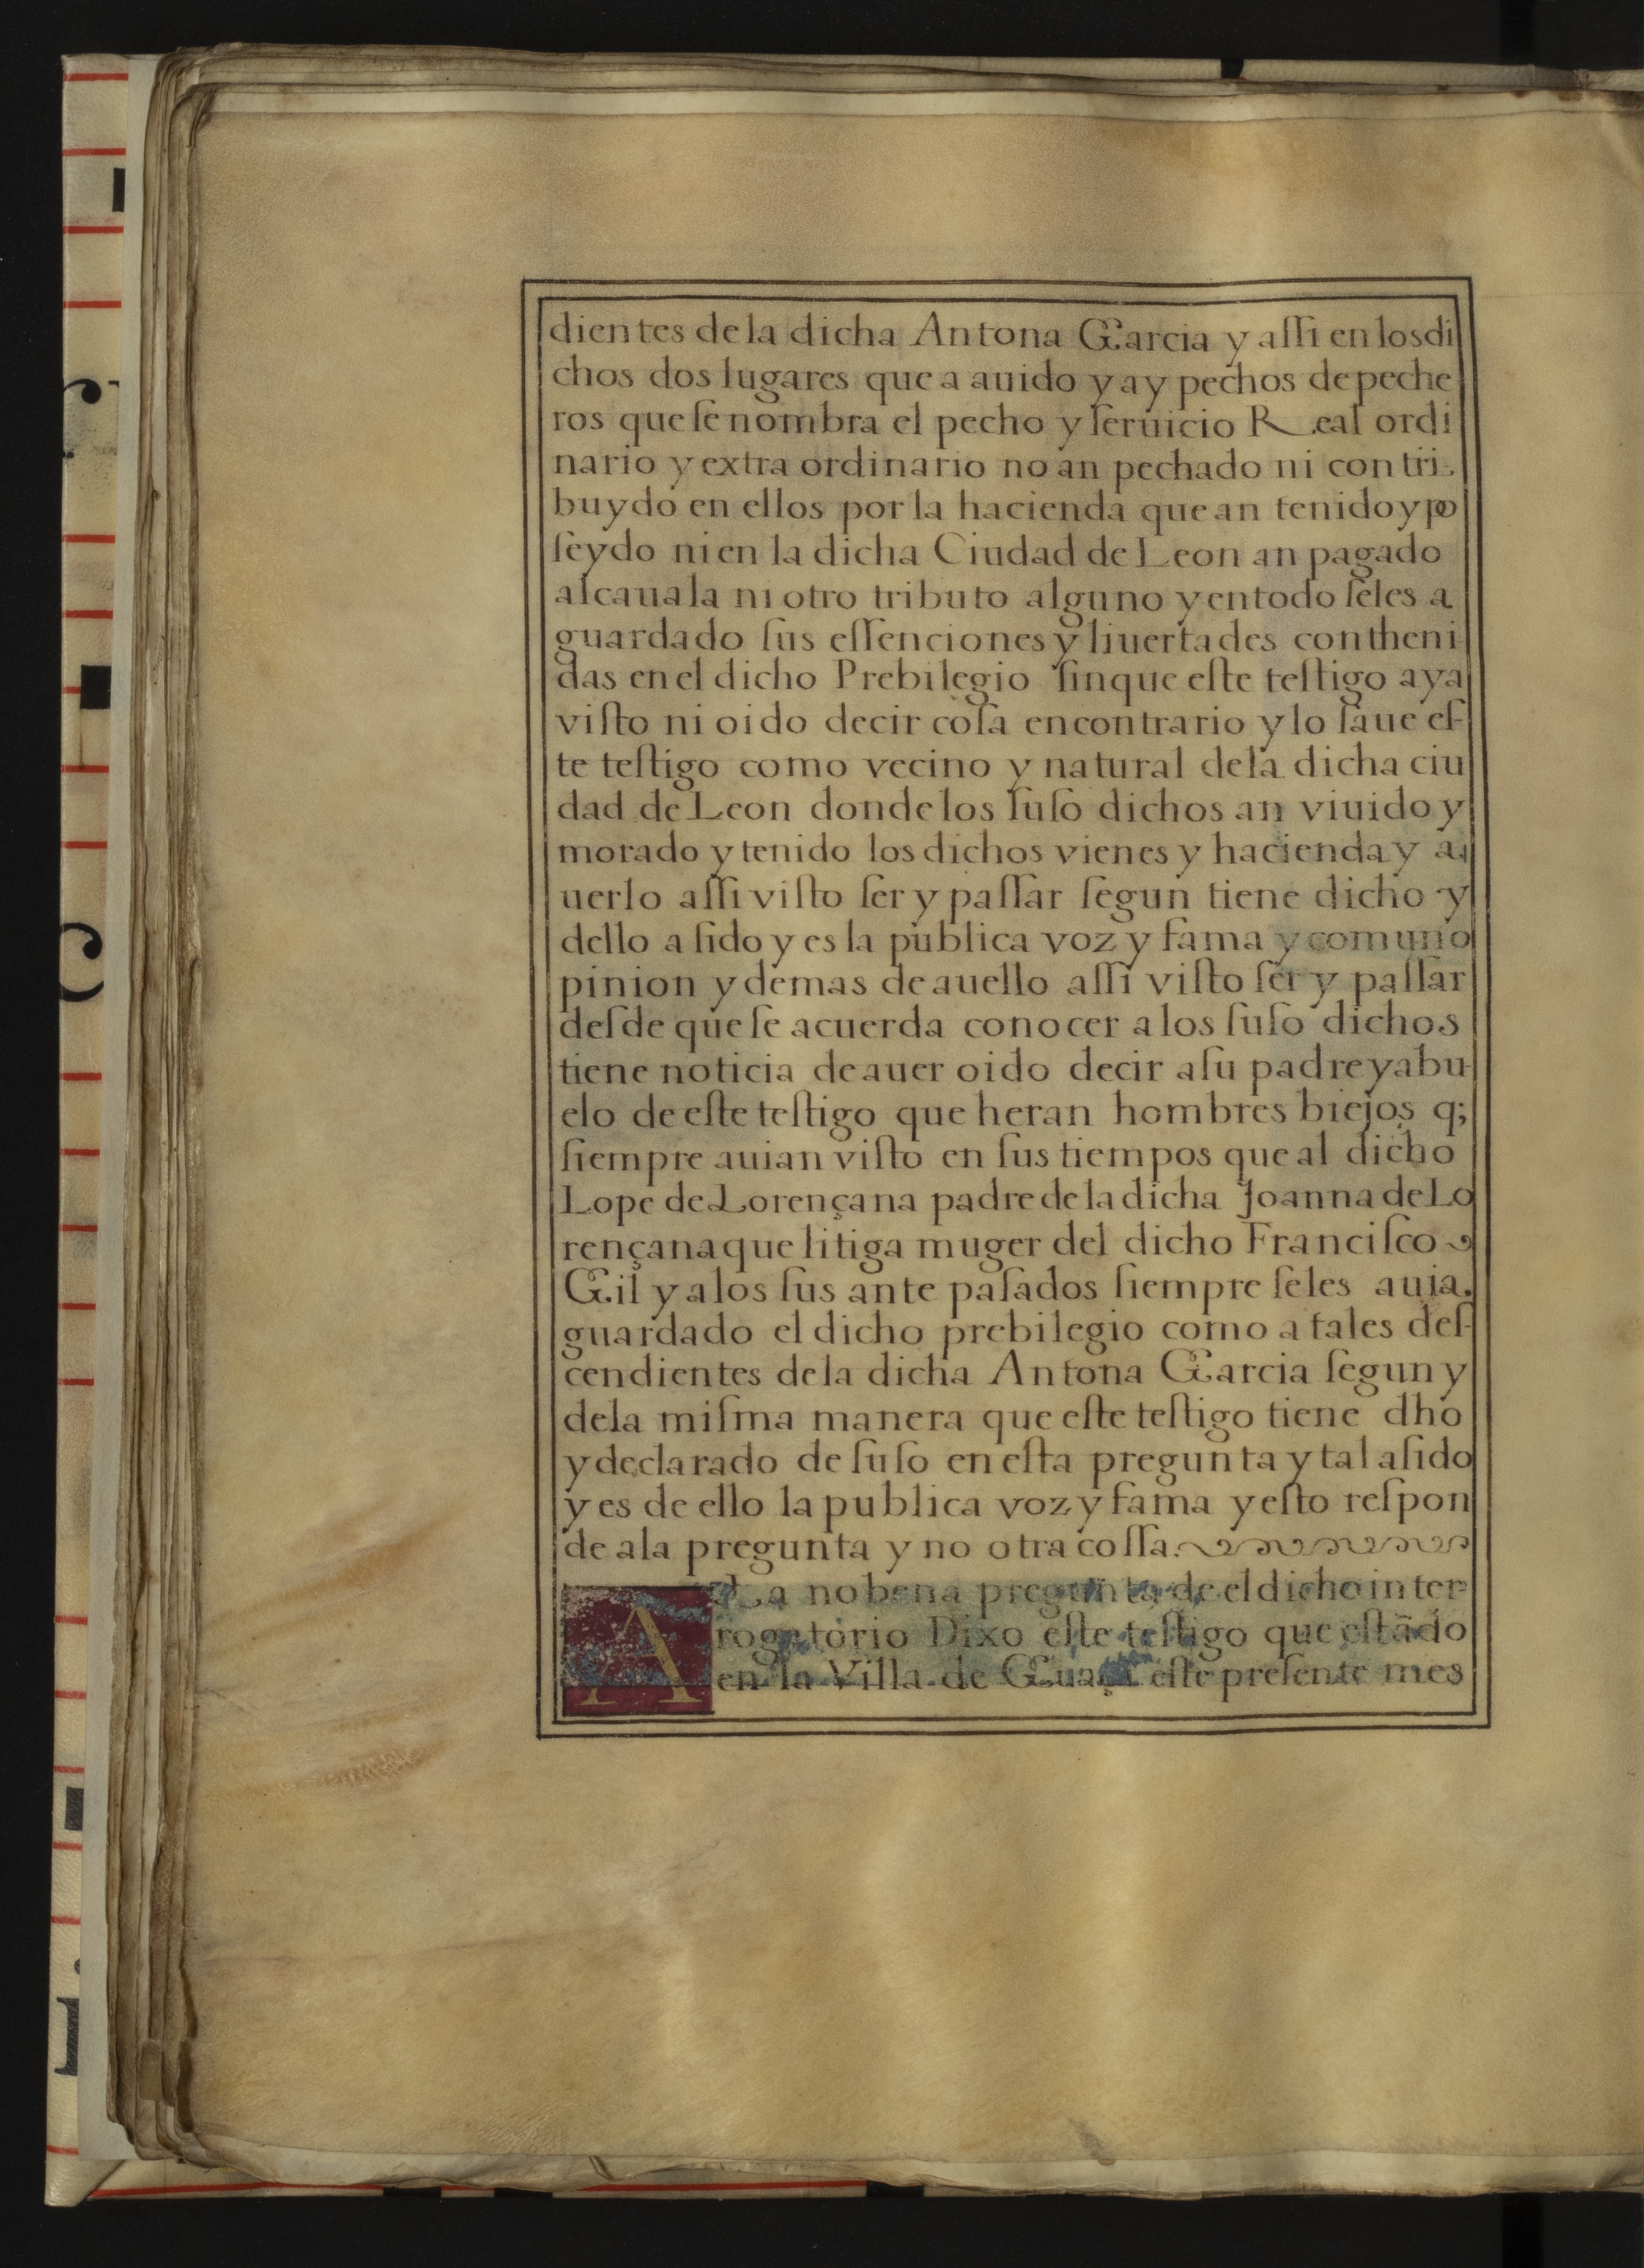 dientes de la dicha Antona Garcia y aſſi en los di
chos dos lugares que a auido y ay pechos de peche
ros que ſe nombra el pecho y ſeruicio Real ordi
nario y extra ordinario no an pechado ni contri-
buydo en ellos por la hacienda que an tenido y po
ſeydo ni en la dicha Ciudad de Leon an pagado
alcauala ni otro tributo alguno y en todo ſeles a
guardado ſus eſſenciones y liuertades contheni
das en el dicho Prebilegio ſin que eſte teſtigo aya
viſto ni oido decir coſa en contrario y lo ſaue eſ-
te teſtigo como vecino y natural de la dicha ciu
dad de Leon donde los ſuſo dichos an viuido y
morado y tenido los dichos vienes y hacienda y a
uerlo aſſi viſto ſer y paſſar ſegun tiene dicho y
dello a ſido y es la publica voz y fama y comun o
pinion y demas de auello aſſi viſto ſer y paſſar
deſde que ſe acuerda conocer a los ſuſo dichos
tiene noticia de auer oido decir a ſu padre y abu-
elo de eſte teſtigo que heran hombres biejos q;
ſiempre auian viſto en ſus tiempos que al dicho
Lope de Lorençana padre de la dicha Joanna de Lo
rençana que litiga muger del dicho Franciſco
Gil y a los ſus ante paſados ſiempre ſeles auia.
guardado el dicho prebilegio como a tales deſ-
cendientes de la dicha Antona Garcia ſegun y
de la miſma manera que eſte teſtigo tiene dho
y declarado de ſuſo en eſta pregunta y tal a ſido
y es de ello la publica voz y fama y eſto reſpon
de a la pregunta y no otra coſſa.
A La nobena pregunta de el dicho inter-
rogatorio Dixo eſte teſtigo que eſtãdo
en la Villa de eſte preſente mes